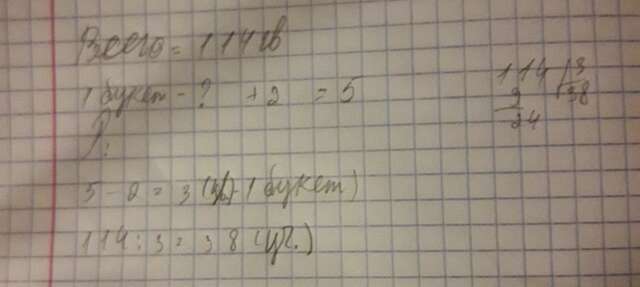 Всего = 114 цв
1 букет - ? + 2 = 5
Р:
5 - 2 = 3 (цв) - 1 букет)
114 : 3 = 38 (уч.)
114 | 3
9 38
24